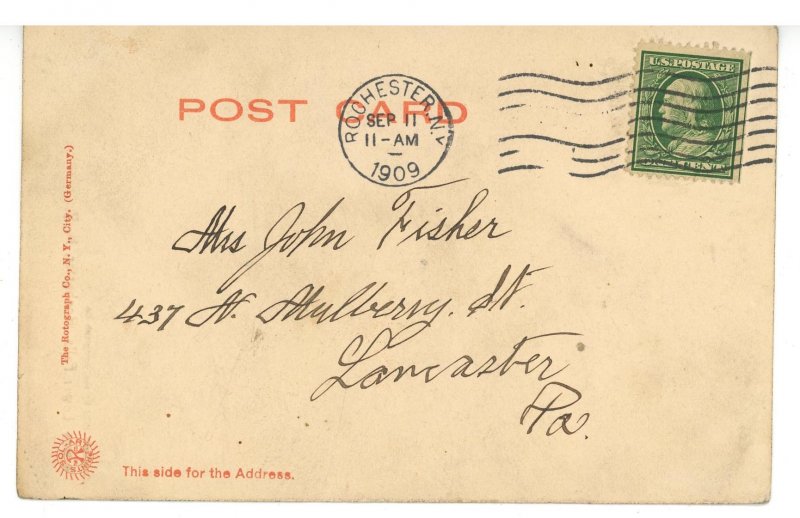 U.S. POSTAGE
POST CARD
ROCHESTER, N.Y.
SEP 11
11-AM
1909
Mrs John Fisher
437 N. Mulberry. St.
Lancaster
Pa.
The Rotograph Co., N. Y., City. (Germany.)
This side for the Address.